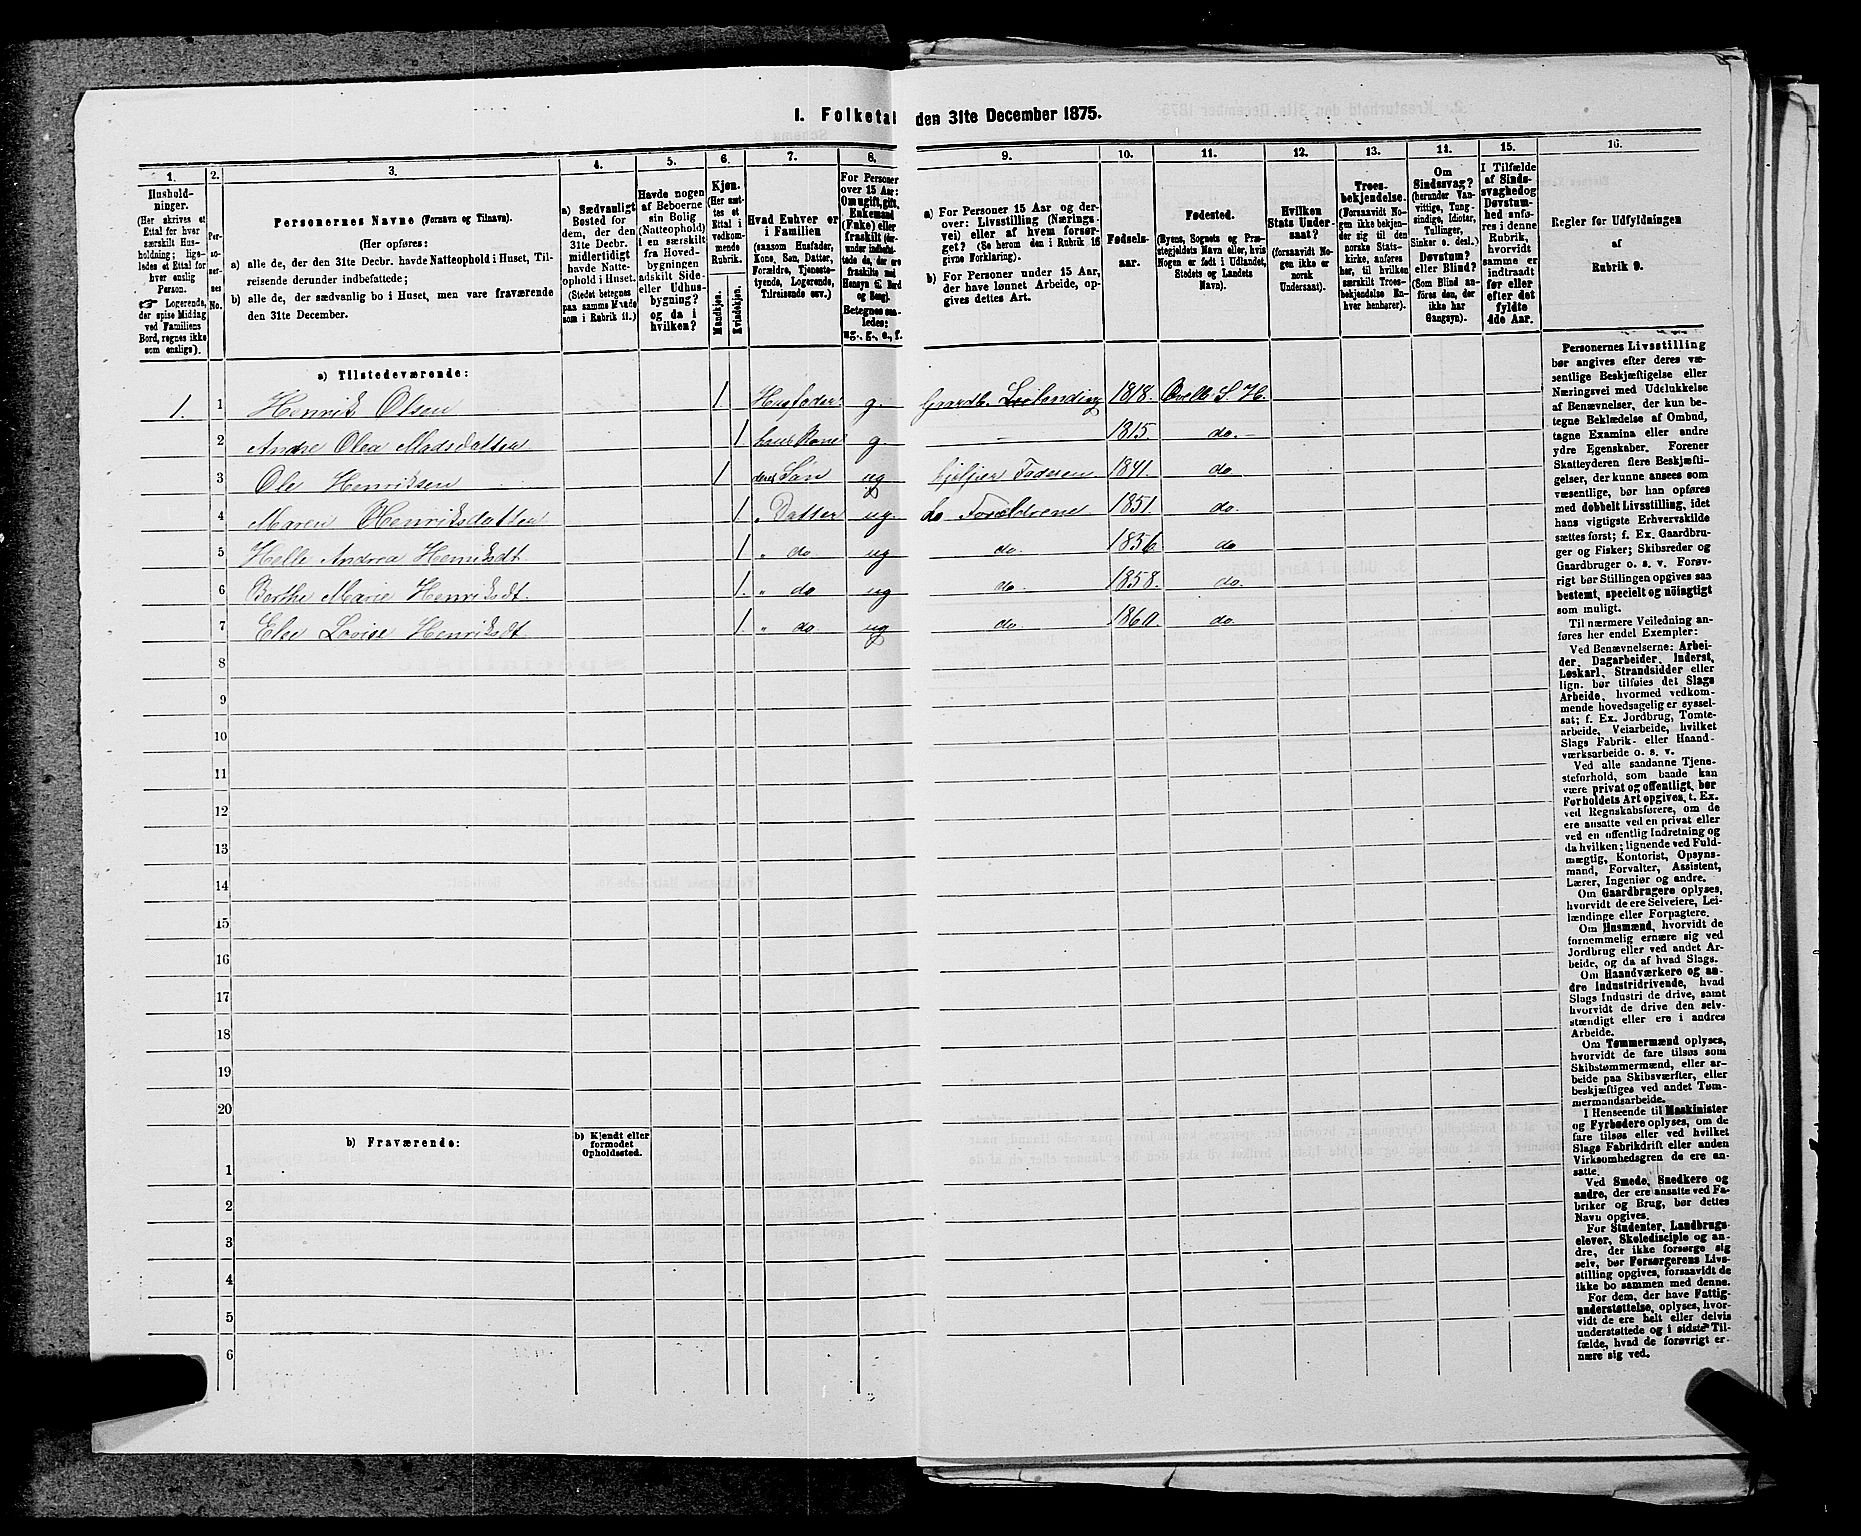 I. Folketal den 31te December 1875.
1.
2.
3.
4.
5.
6.
7.
8.
9.
10.
11.
12.
13.
14.
15.
16.
Hushold-
ninger.
(Her skrives et
Ettal for hver
særskilt Hus-
holdning; lige-
ledes et Ettal for
hver enslig
Person.
☞ Logerende,
der spise Middag
ved Familiens
Bord, regnes ikke
som enslige).
Per-
so-
ner-
nes
No.
Personernes Navne (Fornavn og Tilnavn).
(Her opføres:
a) alle de, der den 31te Decbr. havde Natteophold i Huset, Til-
reisende derunder indbefattede;
b) alle de, der sædvanlig bo i Huset, men vare fraværende
den 31te December.
a) Sædvanligt
Bosted for
dem, der den
31te Decbr.
midlertidigt
havde Natte-
ophold i Huset.
(Stedet betegnes
paa samme Maade
som i Rubrik 11.)
Havde nogen
af Beboerne
sin Bolig
(Natteophold)
i en særskilt
fra Hoved-
bygningen
adskilt Side-
eller Udhus-
bygning?
og da i
hvilken?
Kjøn.
(Her sæt-
tes et
Ettal i
vedkom-
mende
Rubrik.
Mandkjøn.
Kvindekjøn.
Hvad Enhver er
i Familien
(saasom Husfader,
Kone, Søn, Datter,
Forældre, Tjeneste-
tyende, Logerende,
Tilreisende osv.)
For Personer
over 15 Aar:
Om ugift, gift,
Enkemand
(Enke) eller
fraskilt
Betegnes saa-
ledes:
ug., g., e., f.
a) For Personer 15 Aar og der-
over: Livsstilling (Nærings-
vei) eller af hvem forsør-
get? (Se herom den i Rubrik 16
givne Forklaring).
b) For Personer under 15 Aar,
der have lønnet Arbeide, op-
gives dettes Art.
Fødsels-
aar.
Fødested.
(Byens, Sognets og Præ-
stegjeldets Navn eller, hvis
Nogen er født i Udlandet,
Stedets og Landets
Navn).
Hvilken
Stats Under-
saat?
(forsaavidt No-
gen ikke er
norsk
Undersaat).
Troes-
bekjendelse.
(Forsaavidt No-
gen ikke bekjen-
der sig til den
norske Stats-
kirke, anføres
her, til hvilken
særskilt Troes-
bekjendelse En-
hver henhører).
Om
Sindssvag?
(herunder Van-
vittige, Tung-
sindige, Idioter,
Tullinger,
Sinker o. desl.)
Døvstum?
eller Blind?
(Som Blind an-
føres den, der
ikke har
Gangsyn).
I Tilfælde
af Sinds-
svaghed og
Døvstum-
hed anfø-
res i denne
Rubrik,
hvorvidt
samme er
indtraadt
før eller
efter det
fyldte
4de Aar.
Regler for Udfyldningen
af
Rubrik 9.
a) Tilstedeværende:
1. 1 Henrik Olsen 1 Husfader g. Gaardb. Leilending 1818. Ovelb. S. H.
2 Andre Olea Madsdatter 1 hans Kone g. — 1815. do.
3 Ole Henriksen 1 deres Søn ug hjelper Faderen 1841. do
4 Maren Henriksdatter 1 „ Datter ug. do Forældrene 1851. do.
5 Helle Andrea Henriksdt. 1 „ do ug do. 1856. do
6 Berthe Marie Henriksdt. 1. „ do ug do. 1858. do.
7 Elee Lovise Henriksdt 1. „ do ug do. 1860. do.
8
9
10
11
12
13
14
15
16
17
18
19
20
b) Fraværende:
b) Kjendt eller
formodet
Opholdssted.
1
2
3
4
5
6
Personernes Livsstilling
bør angives efter deres væ-
sentlige Beskjæftigelse eller
Næringsvei med Udelukkelse
af Benævnelser, der kun be-
tegne Beklædelse af Ombud,
tagne Examina eller andre
ydre Egenskaber. Forener
Skatteyderen flere Beskjæfti-
gelser, der kunne ansees som
væsentlige, bør han opføres
med dobbelt Livsstilling, idet
hans vigtigste Erhvervskilde
sættes først; f. Ex. Gaardbru-
ger og Fisker; Skibsreder og
Gaardbruger o. s. v. Forøv-
rigt bør Stillingen opgives saa
bestemt, specielt og nöiagtigt
som muligt.
Til nærmere Veiledning an-
føres her endel Exempler:
Ved Benævnelserne: Arbei-
der, Dagarbeider, Inderst,
Løskarl, Strandsidder eller
lign. bør tilføies det Slags
Arbeide, hvormed vedkom-
mende hovedsagelig er syssel-
sat; f. Ex. Jordbrug, Tomte-
arbeide, Veiarbeide, hvilket
Slags Fabrik- eller Haand-
værksarbeide o. s. v.
Ved alle saadanne Tjene-
steforhold, som baade kan
være privat og offentligt, bør
Forholdets Art opgives, t. Ex.
ved Regnskabsførere, om de
ere ansatte ved en privat eller
ved en offentlig Indretning og
da hvilken; lignende ved Fuld-
mægtig, Kontorist, Opsyns-
mand, Forvalter, Assistent,
Lærer, Ingeniør og andre.
Om Gaardbrugere oplyses,
hvorvidt de ere Selveiere, Lei-
lændinge eller Forpagtere.
Om Husmænd, hvorvidt de
fornemmelig ernære sig ved
Jordbrug eller ved andet Ar-
beide, og da af hvad Slags.
Om Haandværkere og an-
dre Industridrivende, hvad
Slags Industri de drive, samt
hvorvidt de drive den selv-
stændigt eller ere i andres
Arbeide.
Om Tømmermænd oplyses,
hvorvidt de fare tilsøs som
Skibstømmermænd, eller ar-
beide paa Skibsværfter, eller
beskjæftiges ved andet Tøm-
mermandsarbeide.
I Henseende til Maskinister
og Fyrbødere oplyses, om de
fare tilsøs eller ved hvilket
Slags Fabrikdrift eller anden
Virksomhedsgren de ere an-
satte.
Ved Smede, Snedkere og
andre, der ere ansatte ved Fa-
briker og Brug, bør dettes
Navn opgives.
For Studenter, Landbrugs-
elever, Skoledisciple og an-
dre, der ikke forsørge sig
selv, bør Forsørgerens Livs-
stilling opgives, forsaavidt de
ikke bo sammen med denne.
For dem, der have Fattig-
understøttelse, oplyses, hvor-
vidt de ere helt eller delvis
understøttede og i sidste Til-
fælde, hvad de forøvrigt er-
nære sig ved.